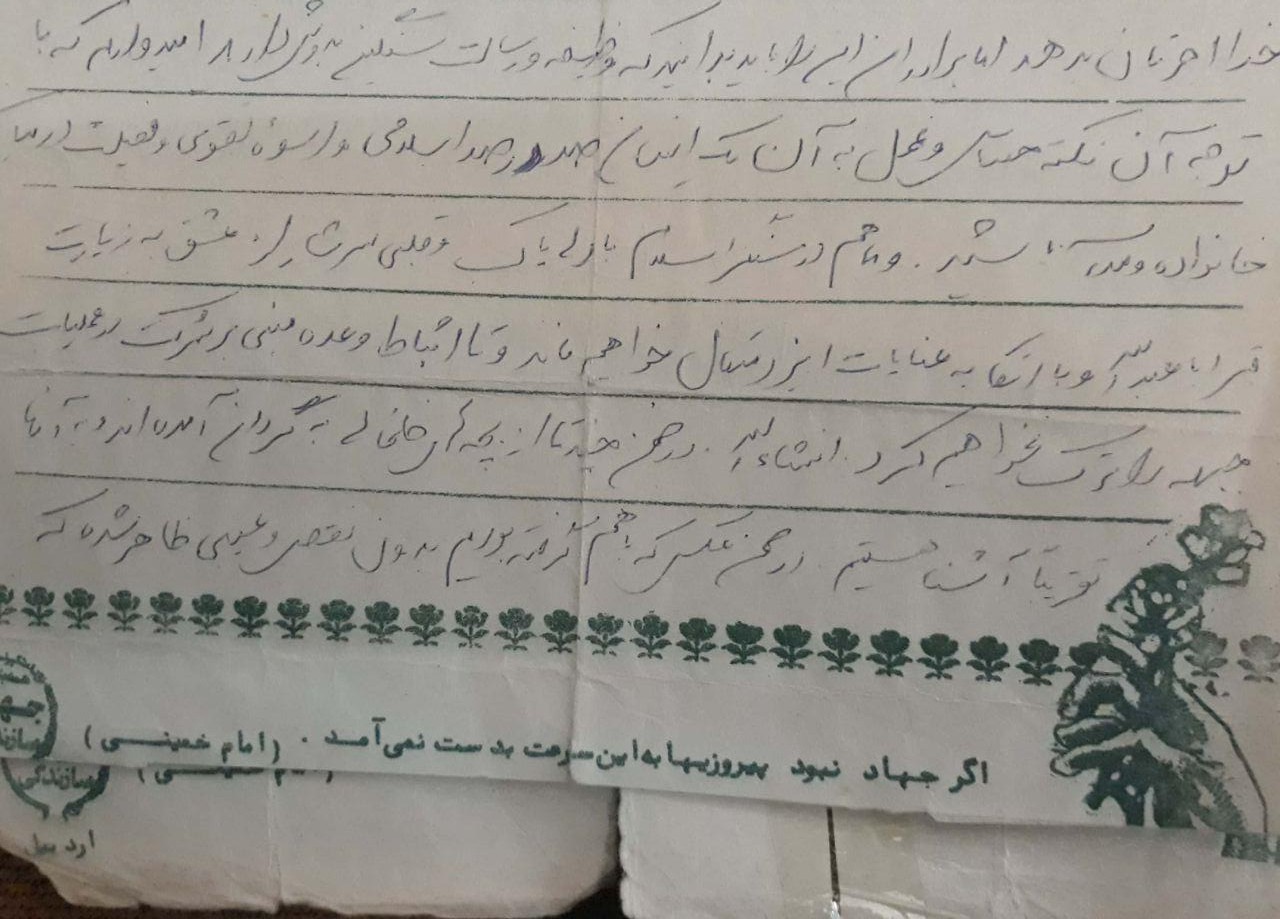 خدا اجرتان بدهد اما برادران این را باید بدانید که وظیفه و رسالت سنگینی بدوش دارید امیدوارم که با
توجه به آن نکته حساس و عمل به آن یک انسان صد در صد اسلامی و اسوه تقوی و فضیلت در میان
خانواده و شوید. و ما هم در سنگر اسلام با دلی پاک و قلبی سرشار از عشق به زیارت
قبر ابا عبدالله و با اتکا به عنایات ایزد متعال خواهیم ماند و تا وعده مبنی بر شرکت در عملیات
جبهه را ترک نخواهیم کرد. انشاءالله. در ضمن چند تا از بچه های خلخالی به گردان آمده اند و به آنها
تقریباً آشنا هستیم. در ضمن عکس که با هم گرفته بودیم بدون نقص و عیبی ظاهر شده که
اگر جهاد نبود پیروزیها به این سرعت بدست نمی آمد. (امام خمینی)
سازندگی
اردبیل